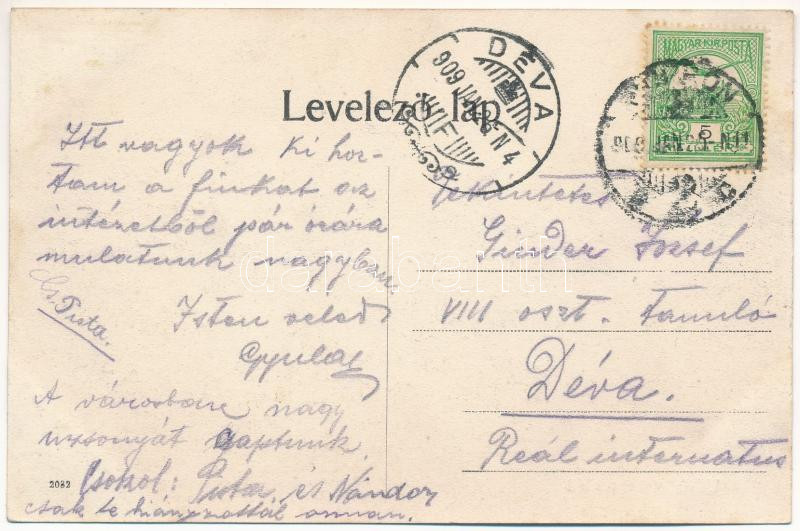 Levelező lap
DÉVA
909 JAN 26 N 4
MAGYAR KIR. POSTA
5
Itt vagyok Ki hoz-
tam a fiukat az
intézetből pár órára
mulatunk nagyban.
G. Pista.
Isten veled
Gyula
A városban nagy
uzsonyát kaptunk
Csokol: Pista és Nándor
csak te hiányzottál onnan.
Tekintetes
Ginder József
VIII oszt. Tanuló
Déva.
Reál internatus
2082
darabanth